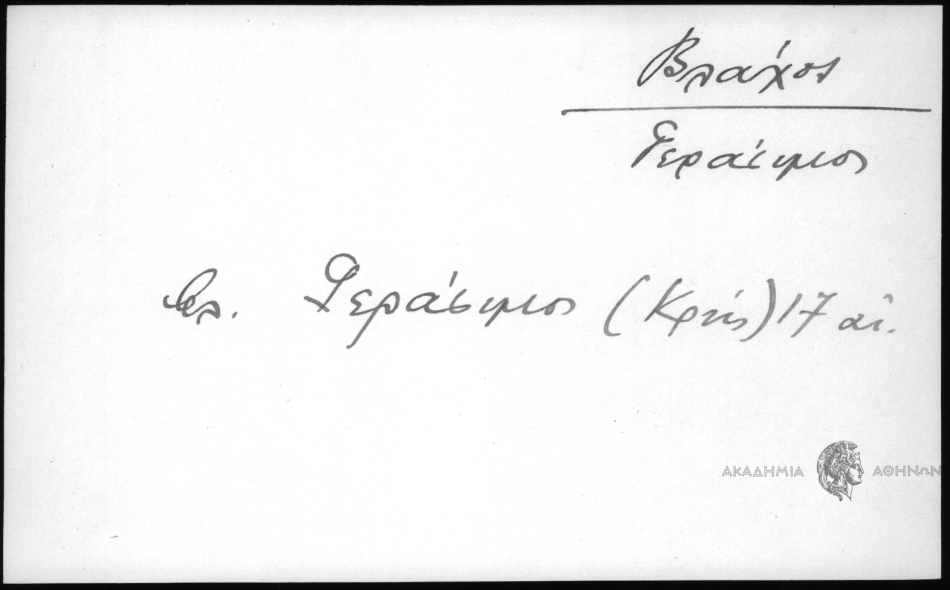 Βλάχος
Γεράσιμος
βλ. Γεράσιμος (Κρής) 17 αἰ.
ΑΚΑΔΗΜΙΑ ΑΘΗΝΩΝ